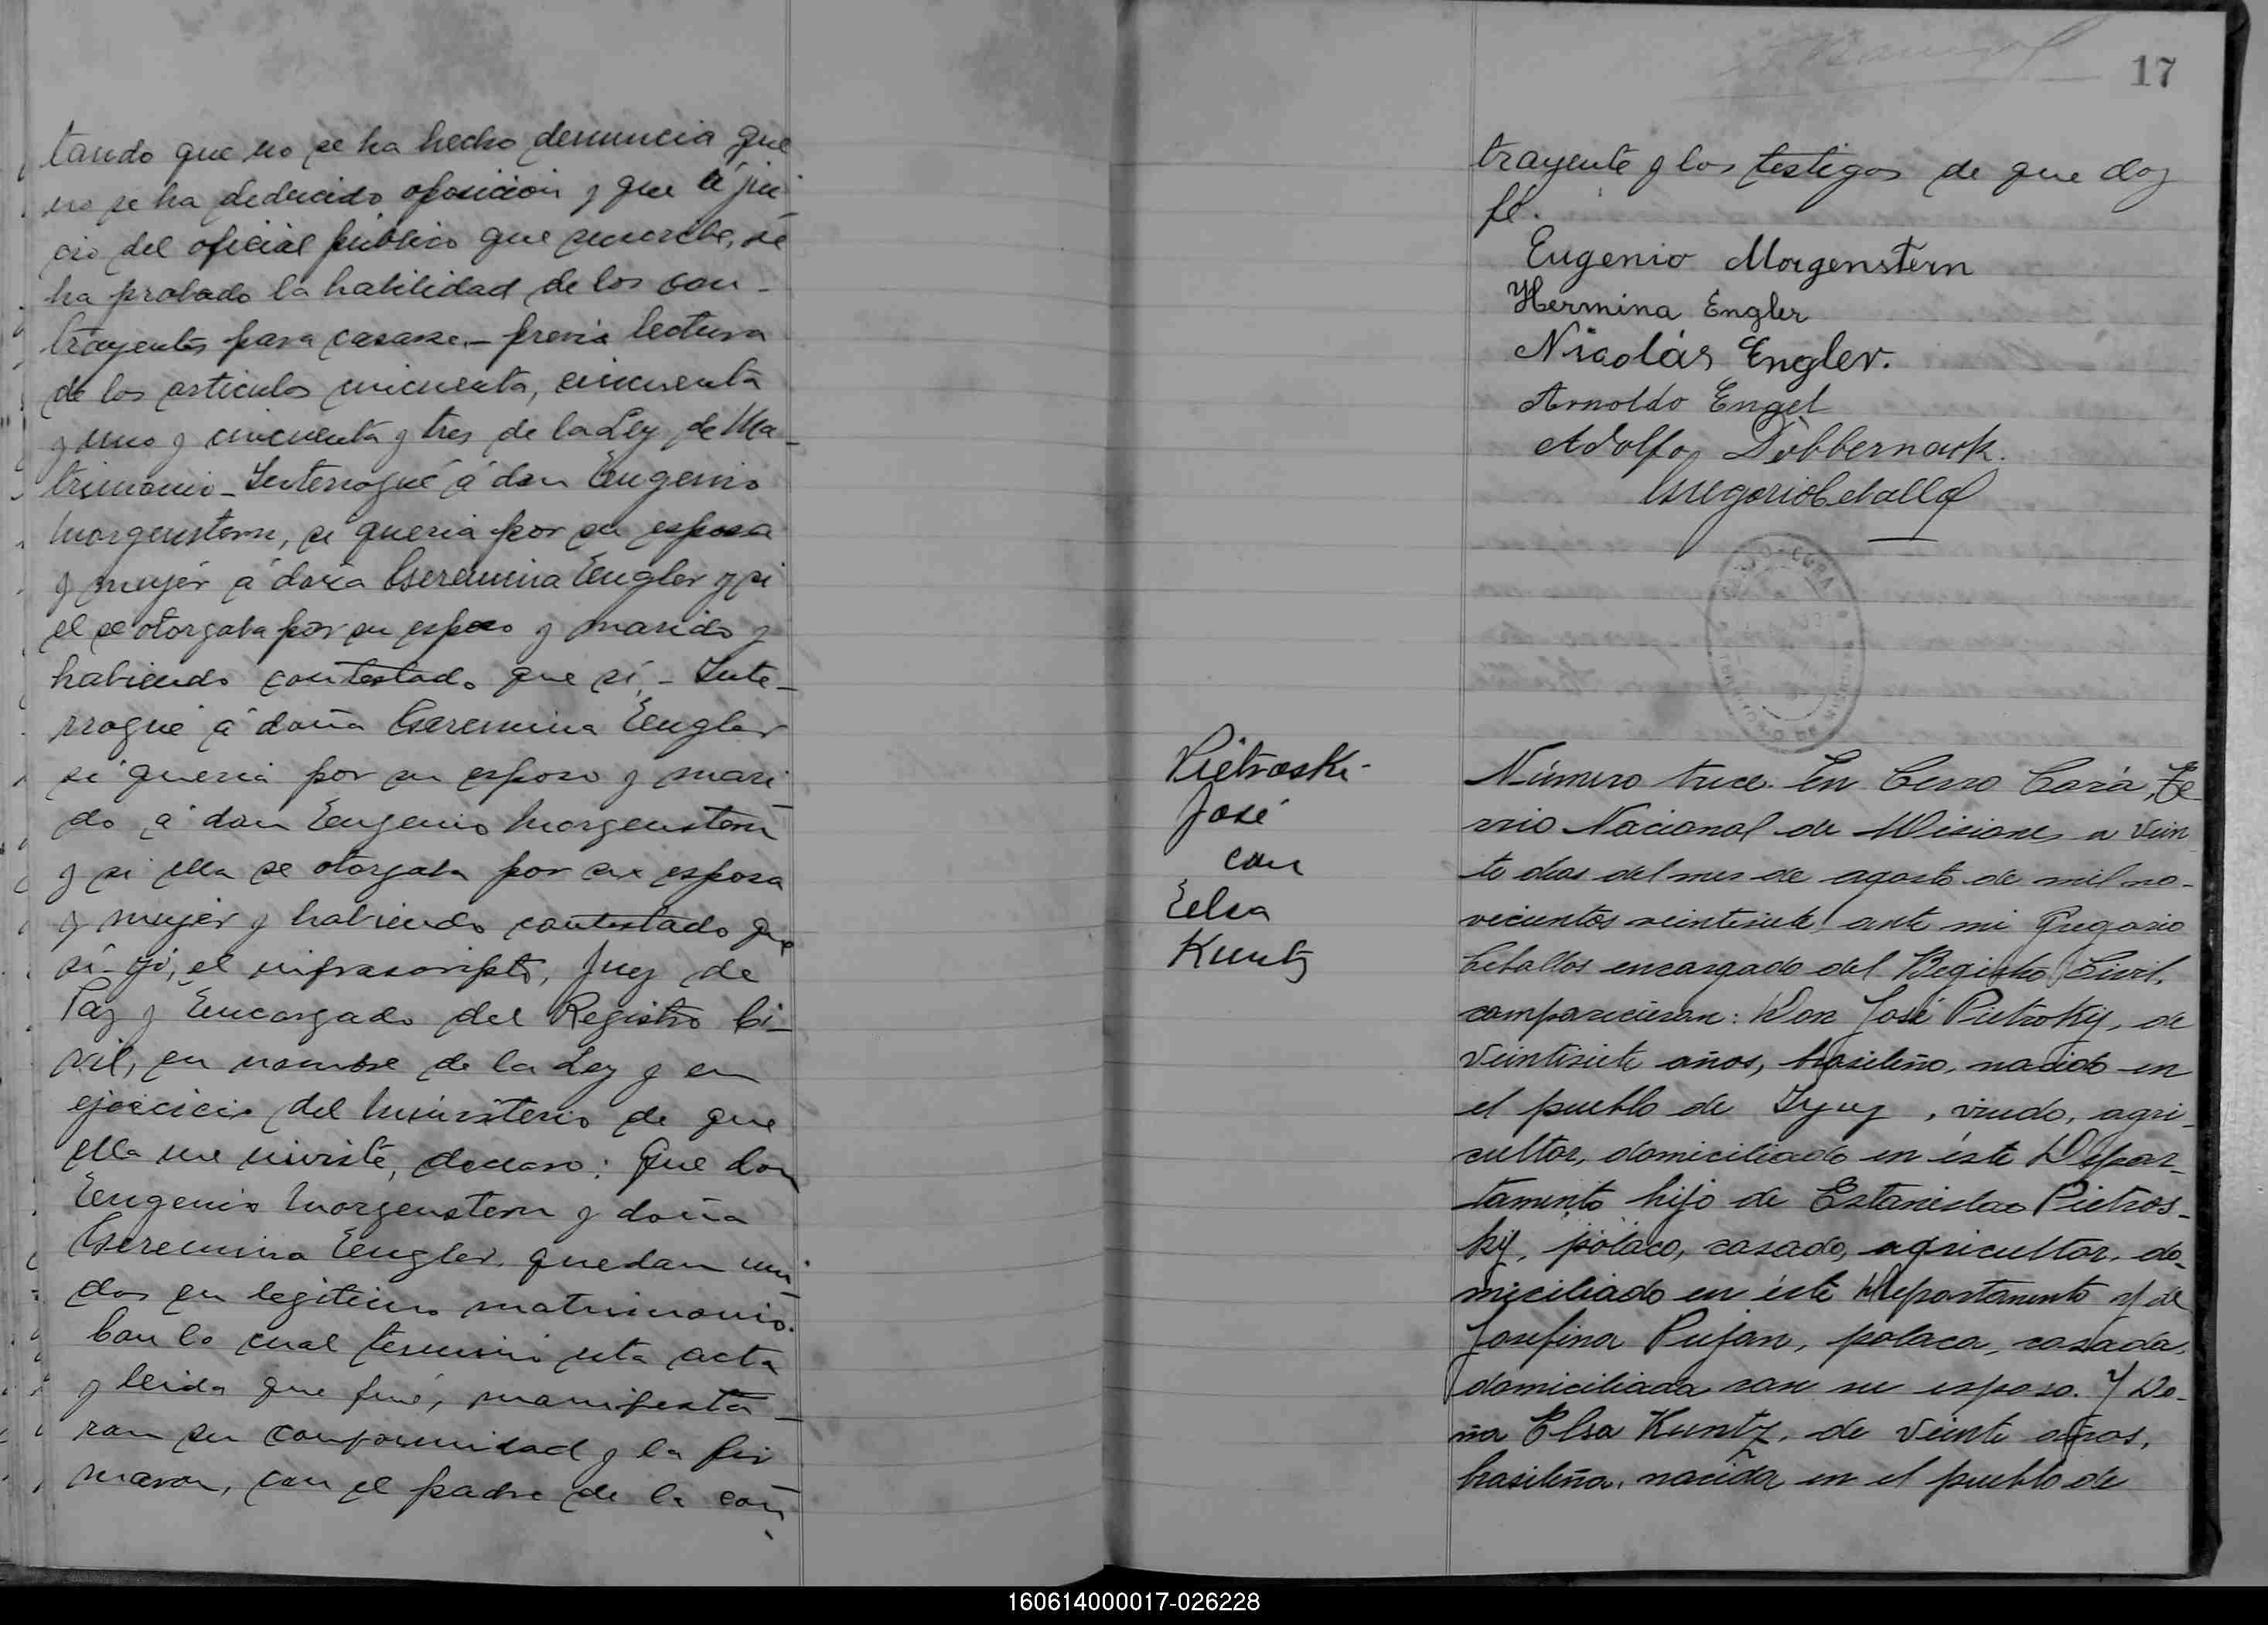 tando que no se ha hecho denuncia que
no se ha deducido oposicion y que á jui
cio del oficial público que suscribe, se
ha probado la habilidad de los con-
trayentes para casarse.- previa lectura
de los articulos cincuenta, cincuenta
y uno y cincuenta y tres de la Ley de Ma-
trimonio- Interrogué á don Eugenio
Morgenstern, si queria por su esposa
y mujer á doña Geremina Eengler y si
el se otorgaba por su esposo y marido y
habiendo contestado que si,- Inte-
rrogué á doña Geremina Eengler
si queria por su esposo y mari
do á don Eengenio Morgenstern
y si ella se otorgaba por su esposa
y mujer y habiendo contestado que
si- yó, el infrascripto, Juez de
Paz y Encargado del Registro Ci-
vil, en nombre de la Ley y en
ejercicio del Ministerio de que
ella me inviste, declaro: Que don
Eengenio Morgenstern y doña
Geremina Eengler, quedan uni
dos en legitimo matrimonio.
Con lo cual terminó esta acta
y leida que fué, manifesta-
ron su conformidad y la fir
maron, con el padre de la con
17
trayente y los testigos de que doy
fé.
Eugenio Morgenstern
Hermina Engler
Nicolás Engler.
Arnoldo Engel
Adolfo Döbbernack.
Gregorio Ceballos
Pietroski-
José
con
Eelsa
Kuntz
Número trece. En Cerro Corá, Te
rrio Nacional de Misiones a vein
te dias del mes de agosto de mil no-
vecientos veintisiete ante mi Gregorio
Ceballos encargado del Registro Civil,
comparecieron: Don José Pietroky, de
veintisiete años, brasileño, nacido en
el pueblo de Yyuy, viudo, agri-
cultor, domiciliado en éste Depar-
tamento hijo de Estanislao Pietros-
ky, polaco, casado, agricultor, do-
miciliado en éste Departamento y de
Josefina Pujan, polaca, casada,
domiciliada con su esposo. Y Do-
ña Elsa Kuntz, de veinte años,
brasileña, nacida en el pueblo de
160614000017-026228